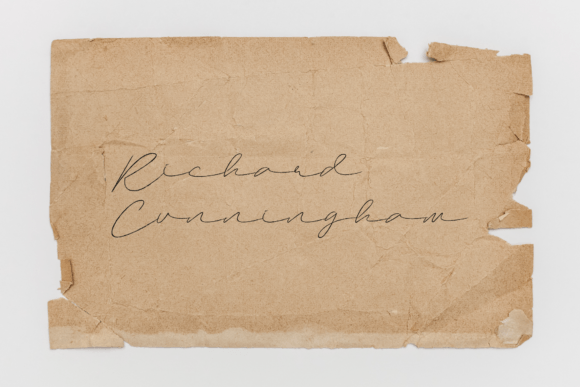 Richard
Cunningham